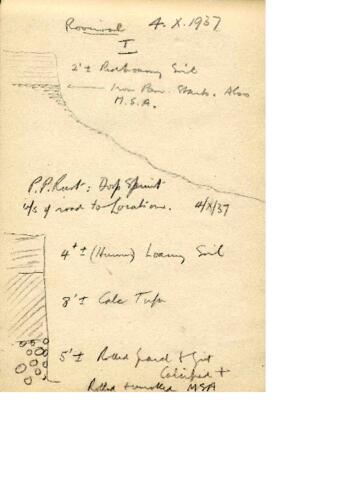 4. X. 1937
I
2' ± Red loamy Soil
Iron Pan. Starts. Also
M.S.A.
P.P. Rust: Dorp Spruit
u/s of road to Location. 4/X/37
4' ± (Humus) Loamy Soil
8' ± Calc Tufa
5' ± Rolled gravel & Grit
Calcified +
Rolled & unrolled MSA